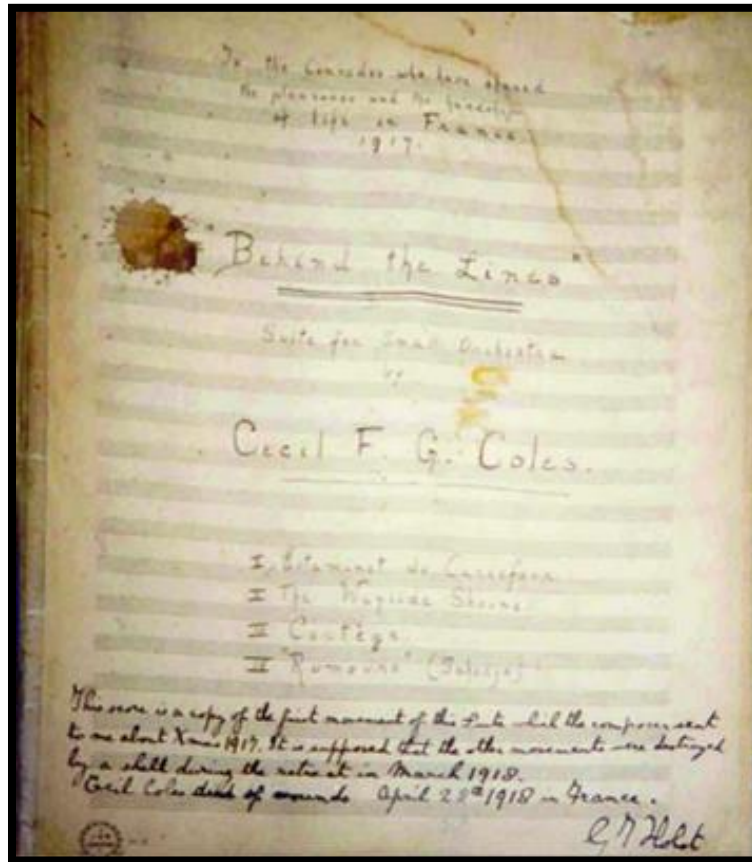 To the Comrades who have shared
the pleasures and the hardships
of life in France.
1917.
"Behind the Lines"
Suite for Small Orchestra
by
Cecil F. G. Coles.
I Estaminet de Carrefour
II The Wayside Shrine
III Cortège.
IV "Rumours"
This score is a copy of the first movement of this Suite which the composer sent
to me about Xmas 1917. It is supposed that the other movements were destroyed
by a shell during the retreat in March 1918.
Cecil Coles died of wounds April 28th 1918 in France.
G T Holst